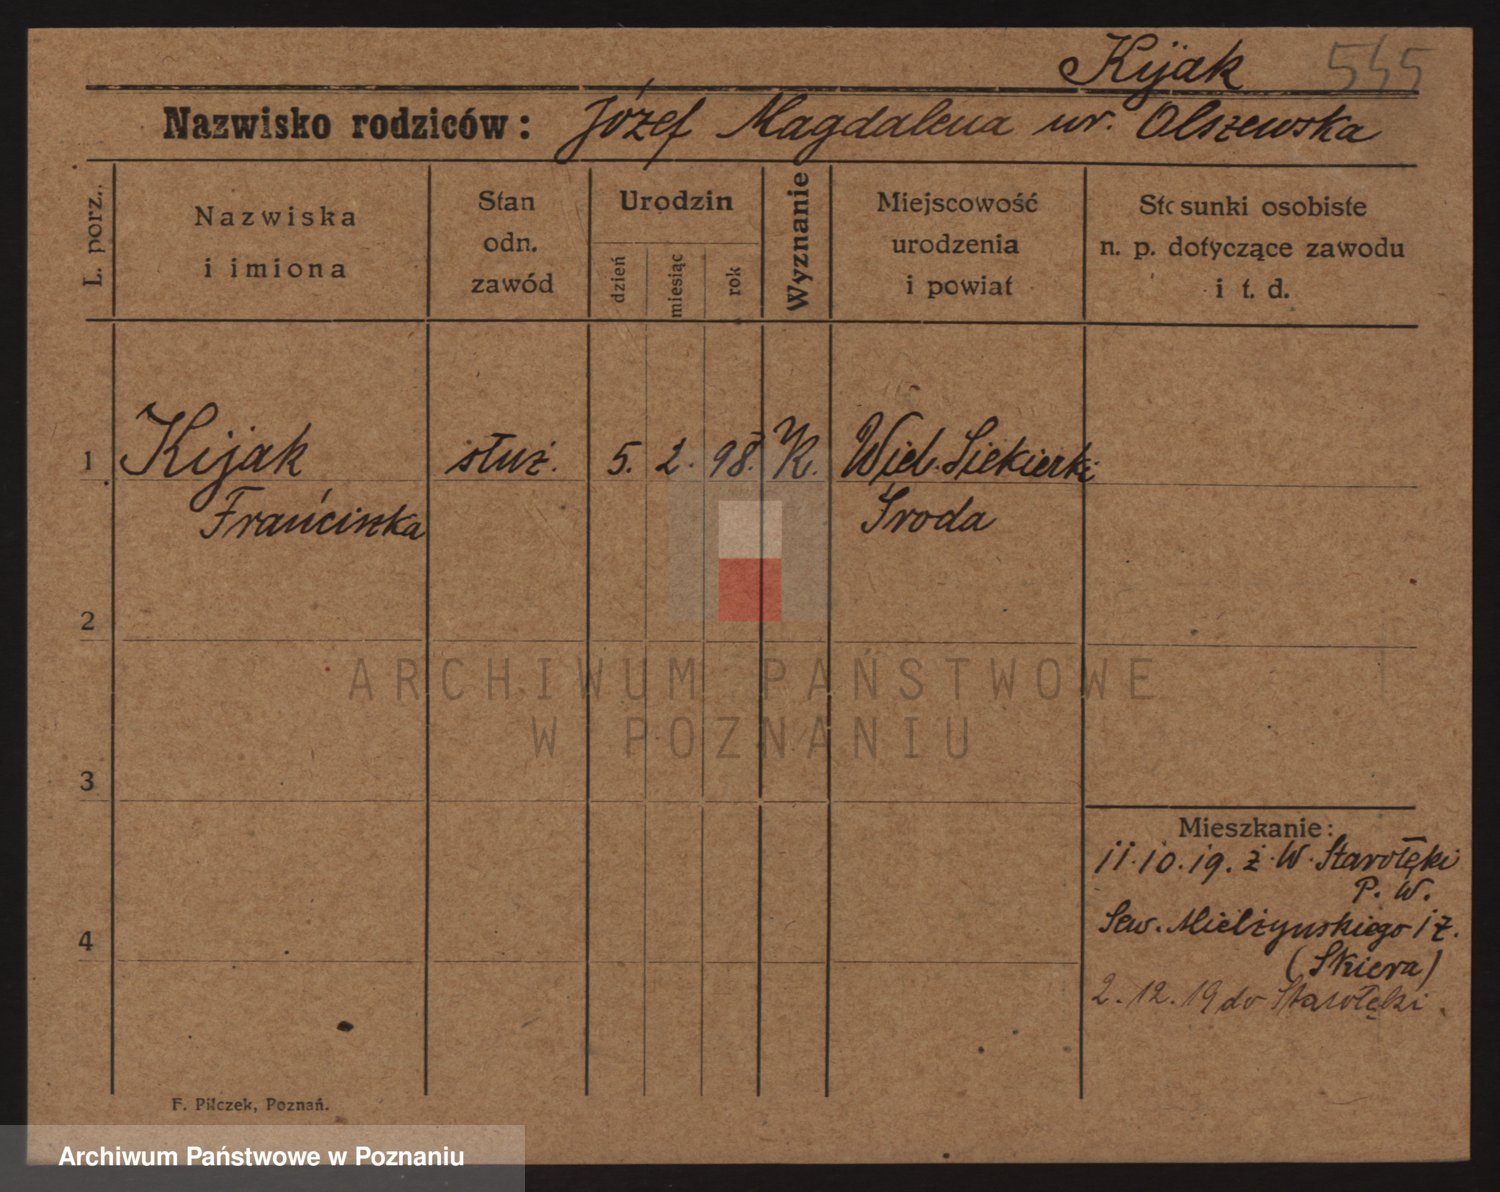 Kijak 545
Nazwisko rodziców: Józef Magdalena ur. Olszewska
L. porz.
Nazwiska
i imiona
Stan
odn.
zawód
Urodzin
dzień
miesiąc
rok
Wyznanie
Miejscowość
urodzenia
i powiat
Stosunki osobiste
n. p. dotyczące zawodu
i t. d.
1 Kijak służ. 5. 2. 98. K. Wiel. Siekierki
Frańciszka Środa
2
ARCHIWUM PAŃSTWOWE
W POZNANIU
3
Mieszkanie:
11.10.19. z W. Starołęki
P. W.
4
Sew. Mielżyńskiego 1 z.
(Skiera)
2.12.19 do Starołęki.
F. Pilczek, Poznań.
Archiwum Państwowe w Poznaniu